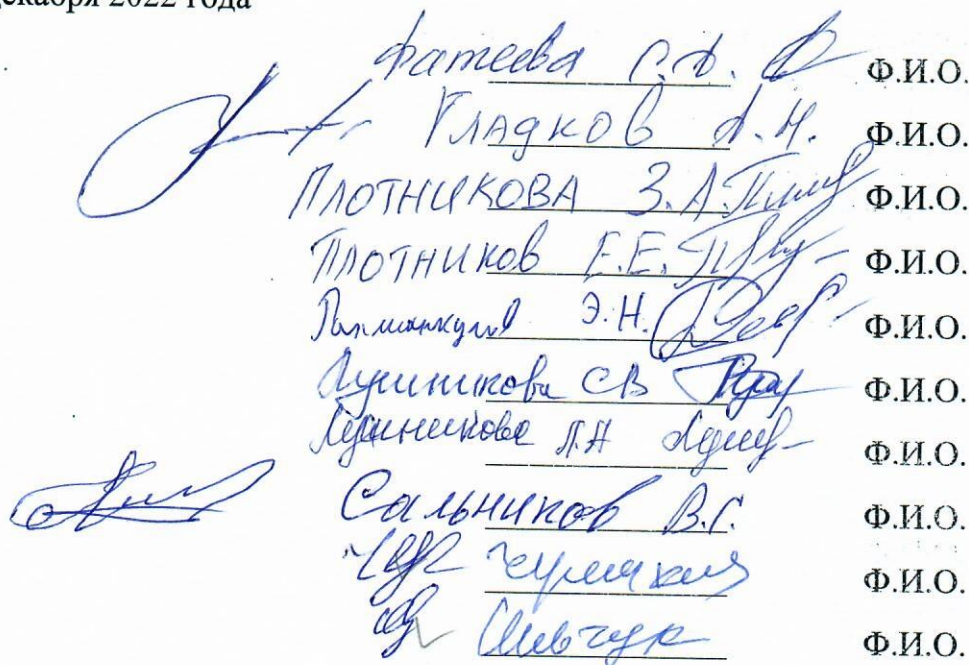 декабря 2022 года
Фатеева С.Д. Ф.И.О.
Гладков А.Н. Ф.И.О.
ПЛОТНИКОВА З.А. Ф.И.О.
ПЛОТНИКОВ Е.Е. Ф.И.О.
Э.Н. Ф.И.О.
Лучникова СВ Ф.И.О.
Лучникова Л.А Ф.И.О.
Сальников В.Г. Ф.И.О.
Ф.И.О.
Шевчук Ф.И.О.